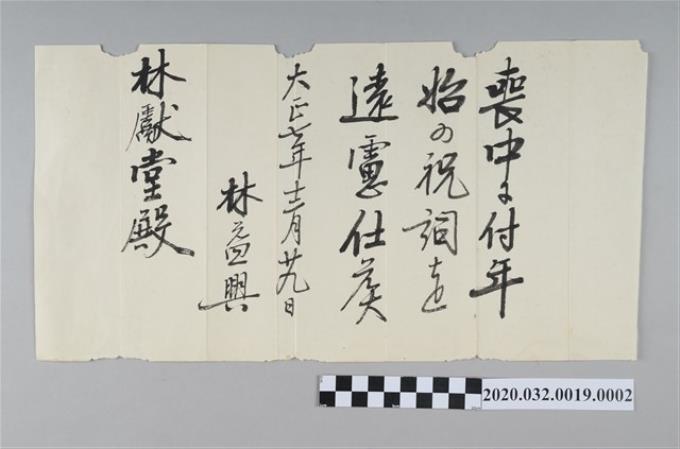 喪中ニ付年
始の祝詞を
遠慮仕候
大正七年十二月廿九日
林益興
林獻堂殿
2020.032.0019.0002